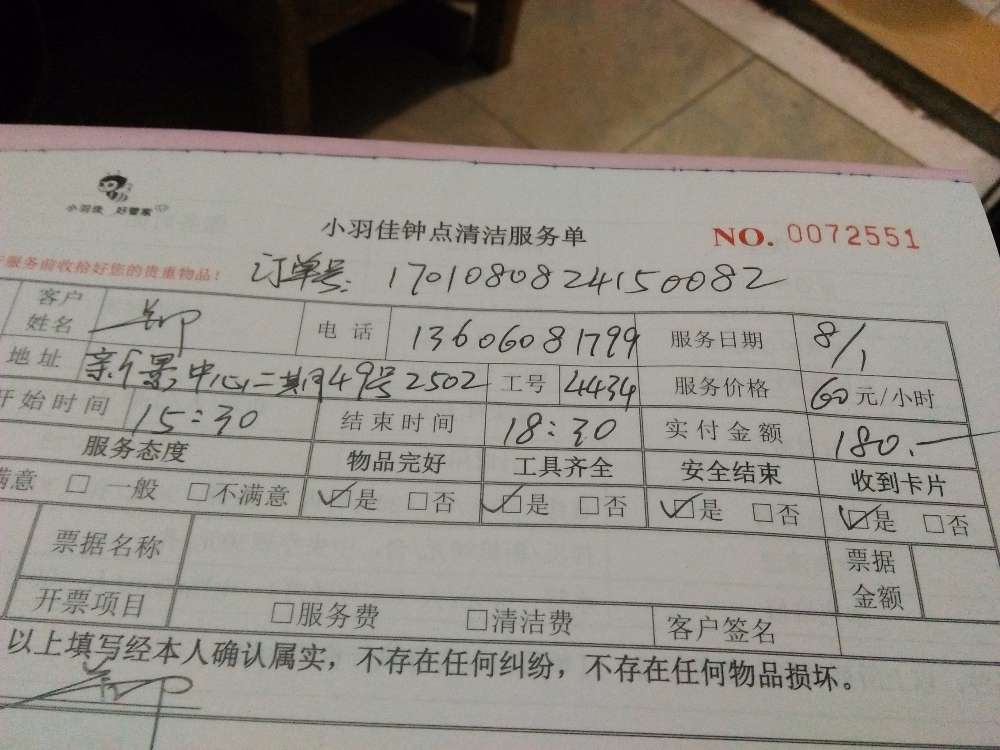 小羽佳 好管家
小羽佳钟点清洁服务单
NO. 0072551
服务前收拾好您的贵重物品！
订单号：1701080824150082
客户姓名 电话 13606081799 服务日期 8/1
地址 中心二期49号2502 工号 4434 服务价格 60元/小时
开始时间 15:30 结束时间 18:30 实付金额 180.-
服务态度 物品完好 工具齐全 安全结束 收到卡片
满意 □一般 □不满意 ☑是 □否 ☑是 □否 ☑是 □否 ☑是 □否
票据名称 票据金额
开票项目 □服务费 □清洁费 客户签名
以上填写经本人确认属实，不存在任何纠纷，不存在任何物品损坏。